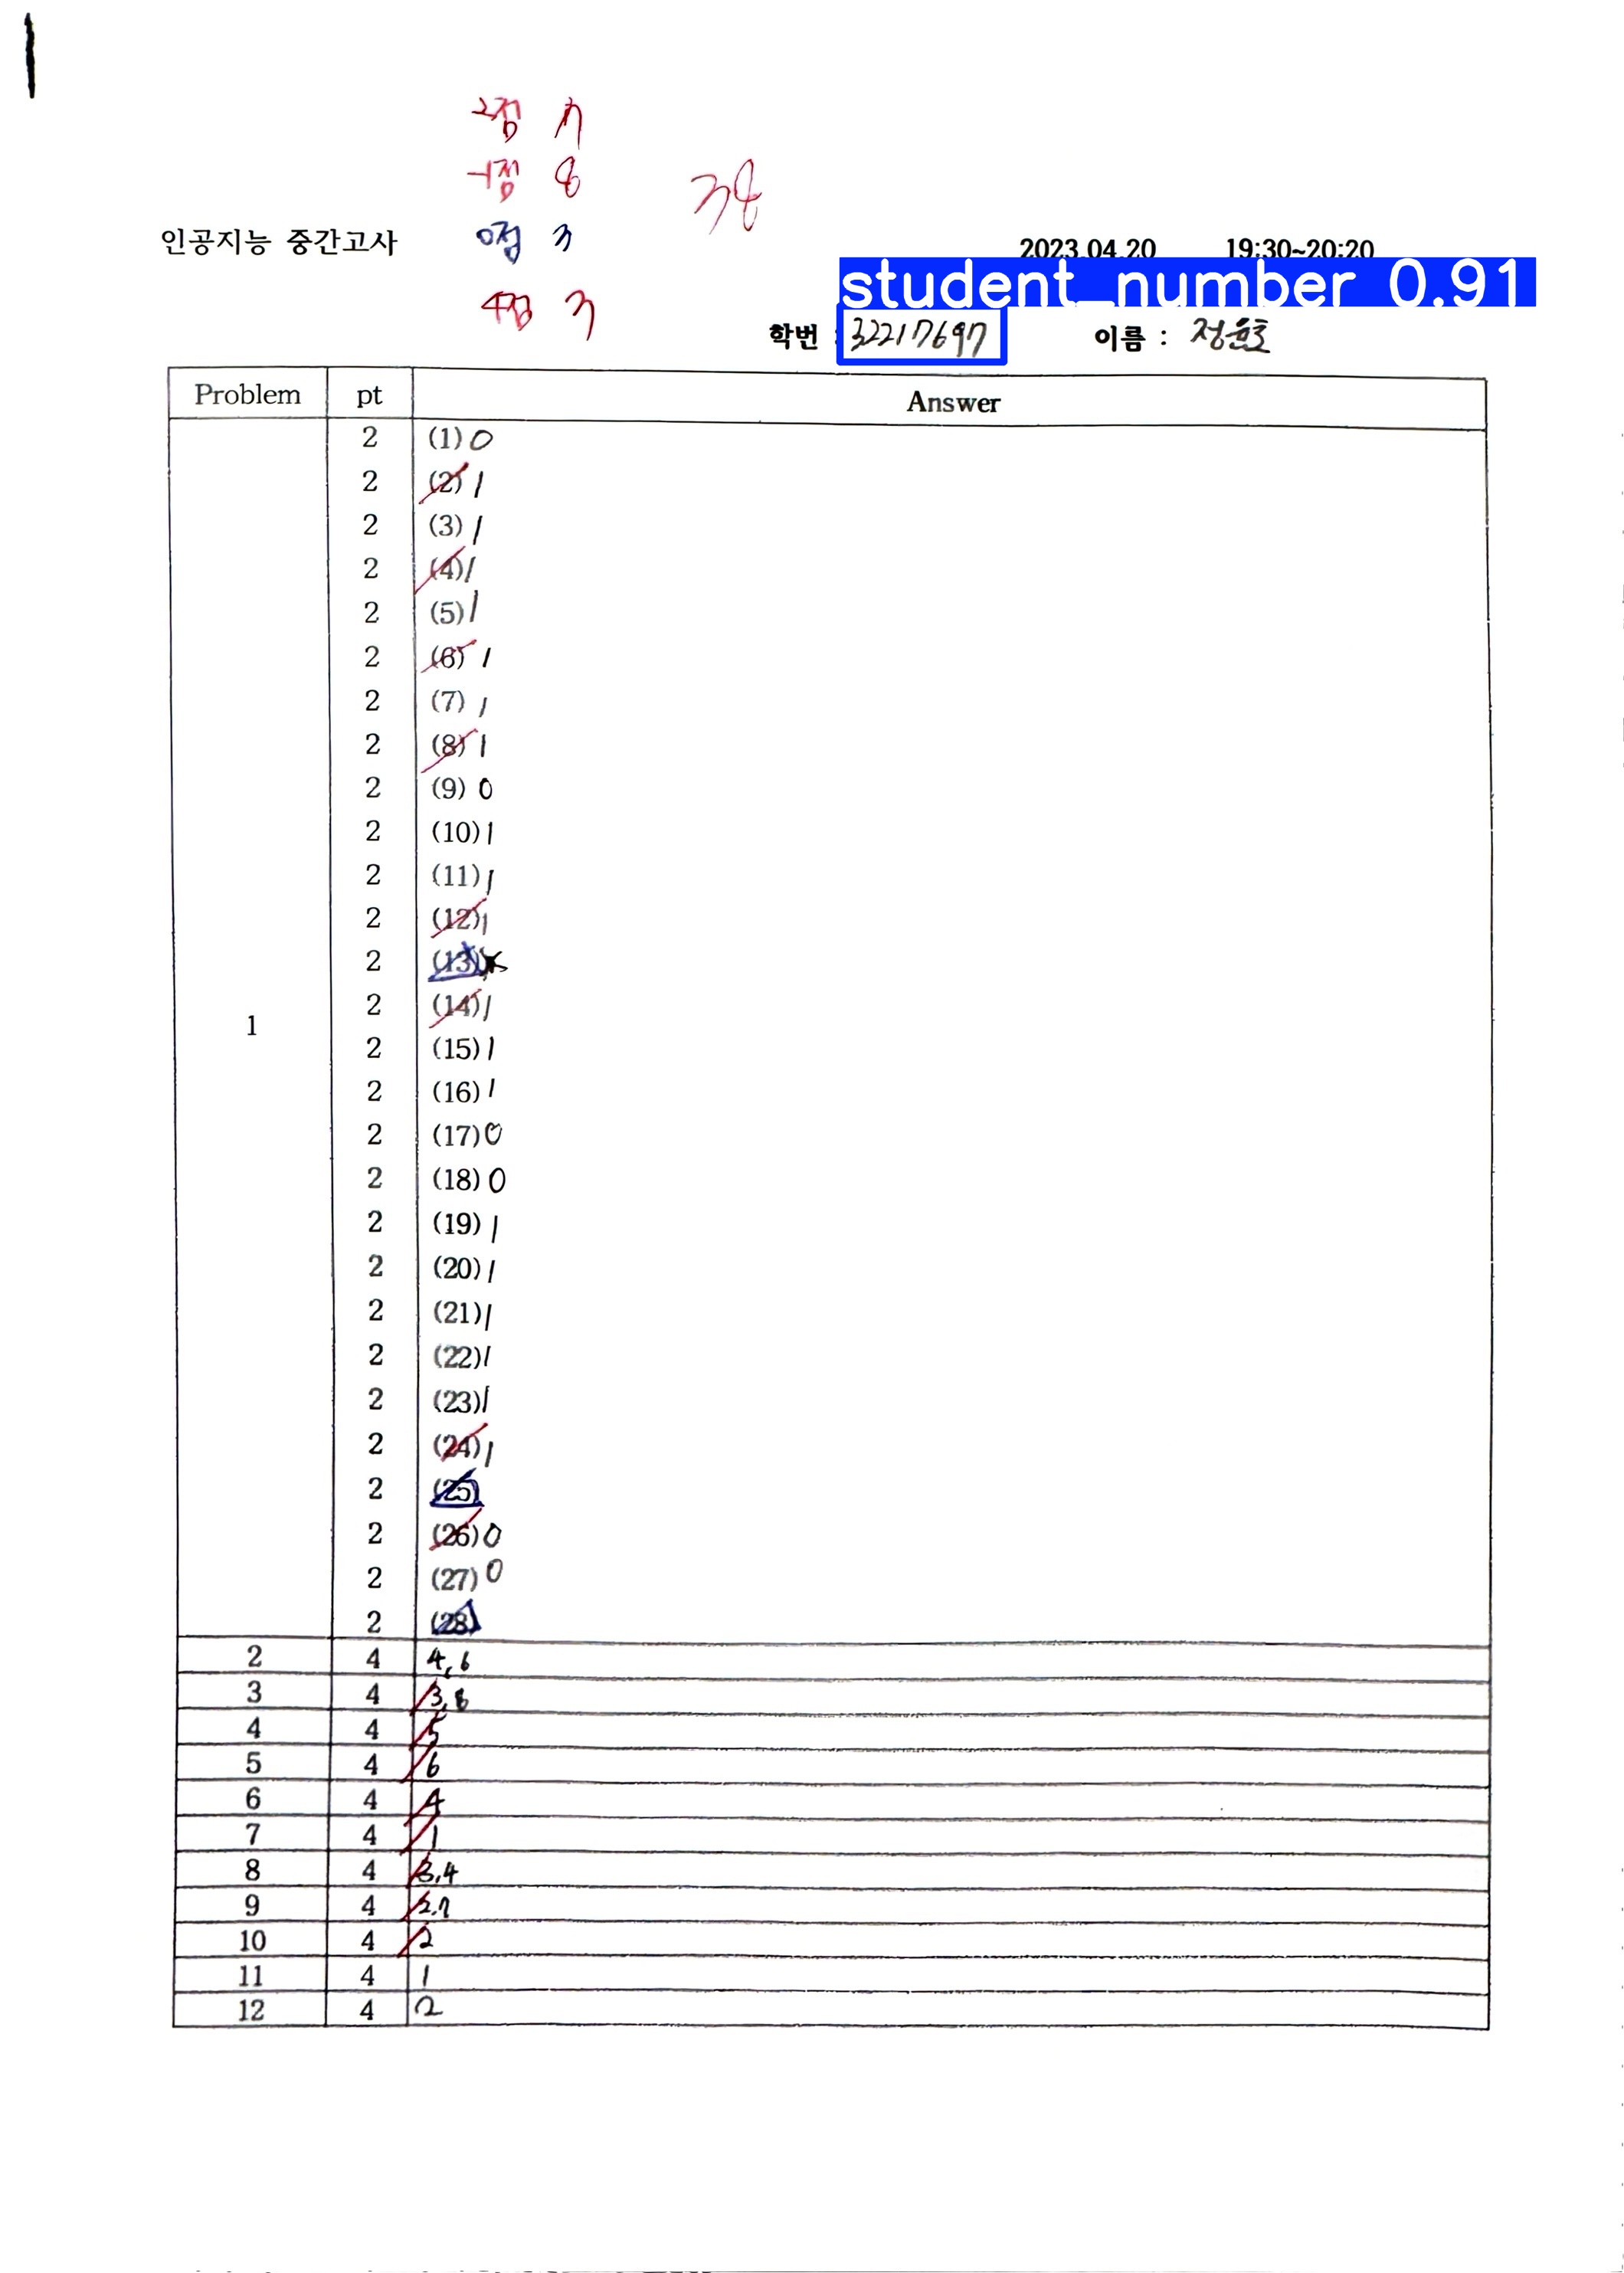 2점 17
-1점 8
38
인공지능 중간고사 0점 3 2023.04.20 19:30~20:20
student_number 0.91
4점 3
학번 : 32217697 이름 : 정윤호
Problem pt Answer
2 (1) 0
2 (2) 1
2 (3) 1
2 (4) 1
2 (5) 1
2 (6) 1
2 (7) 1
2 (8) 1
2 (9) 0
2 (10) 1
2 (11) 1
2 (12) 1
2 (13)
2 (14) 1
1
2 (15) 1
2 (16) 1
2 (17) 0
2 (18) 0
2 (19) 1
2 (20) 1
2 (21) 1
2 (22) 1
2 (23) 1
2 (24) 1
2 (25)
2 (26) 0
2 (27) 0
2 (28)
2 4 4, 6
3 4 3, 8
4 4 5
5 4 6
6 4 4
7 4 1
8 4 3, 4
9 4 2, 7
10 4 2
11 4 1
12 4 2